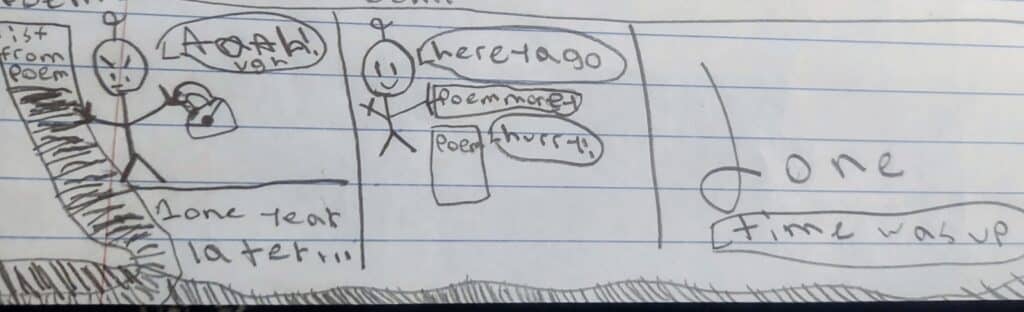 ist
from
poem
Aaahh!
ugh
1one year
later...
here ya go
poem money
poem
hurry!
done
time was up